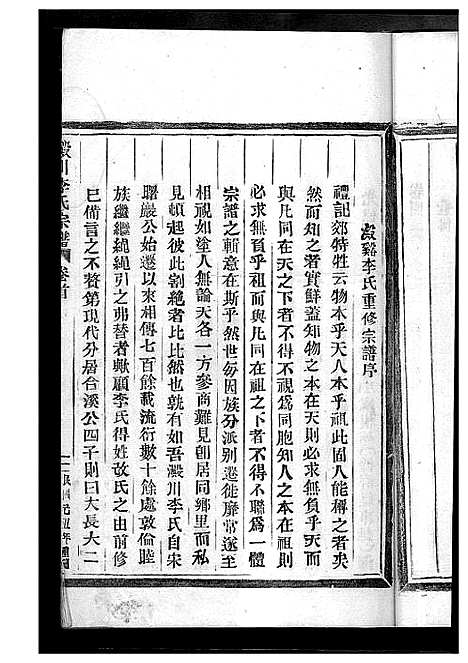 澱谿李氏重修宗譜序
禮記郊特牲云物本乎天人本乎祖此固人能稱之者矣
然而知之者實鮮蓋知物之本在天則必求無負乎天而
與凡同在天之下者不得不視爲同胞知人之本在祖則
必求無負乎祖而與凡同在祖之下者不得不聯爲一體
宗譜之斬意在斯乎然世每因族分派別遷徙靡常遂至
相視如塗人無論天各一方參商難見朝居同鄉里而私
見頓起割絶者比比然也孰有如吾澱川李氏自宋
曙巖公始遷以來相傳七百餘載流衍數十餘處敦倫睦
族繼繼繩繩引之弗替者歟顧李氏得姓故氏之由前修
已備言之不贅第現代分居合溪公四子則曰大長大二
澱川李氏宗譜 卷首
一